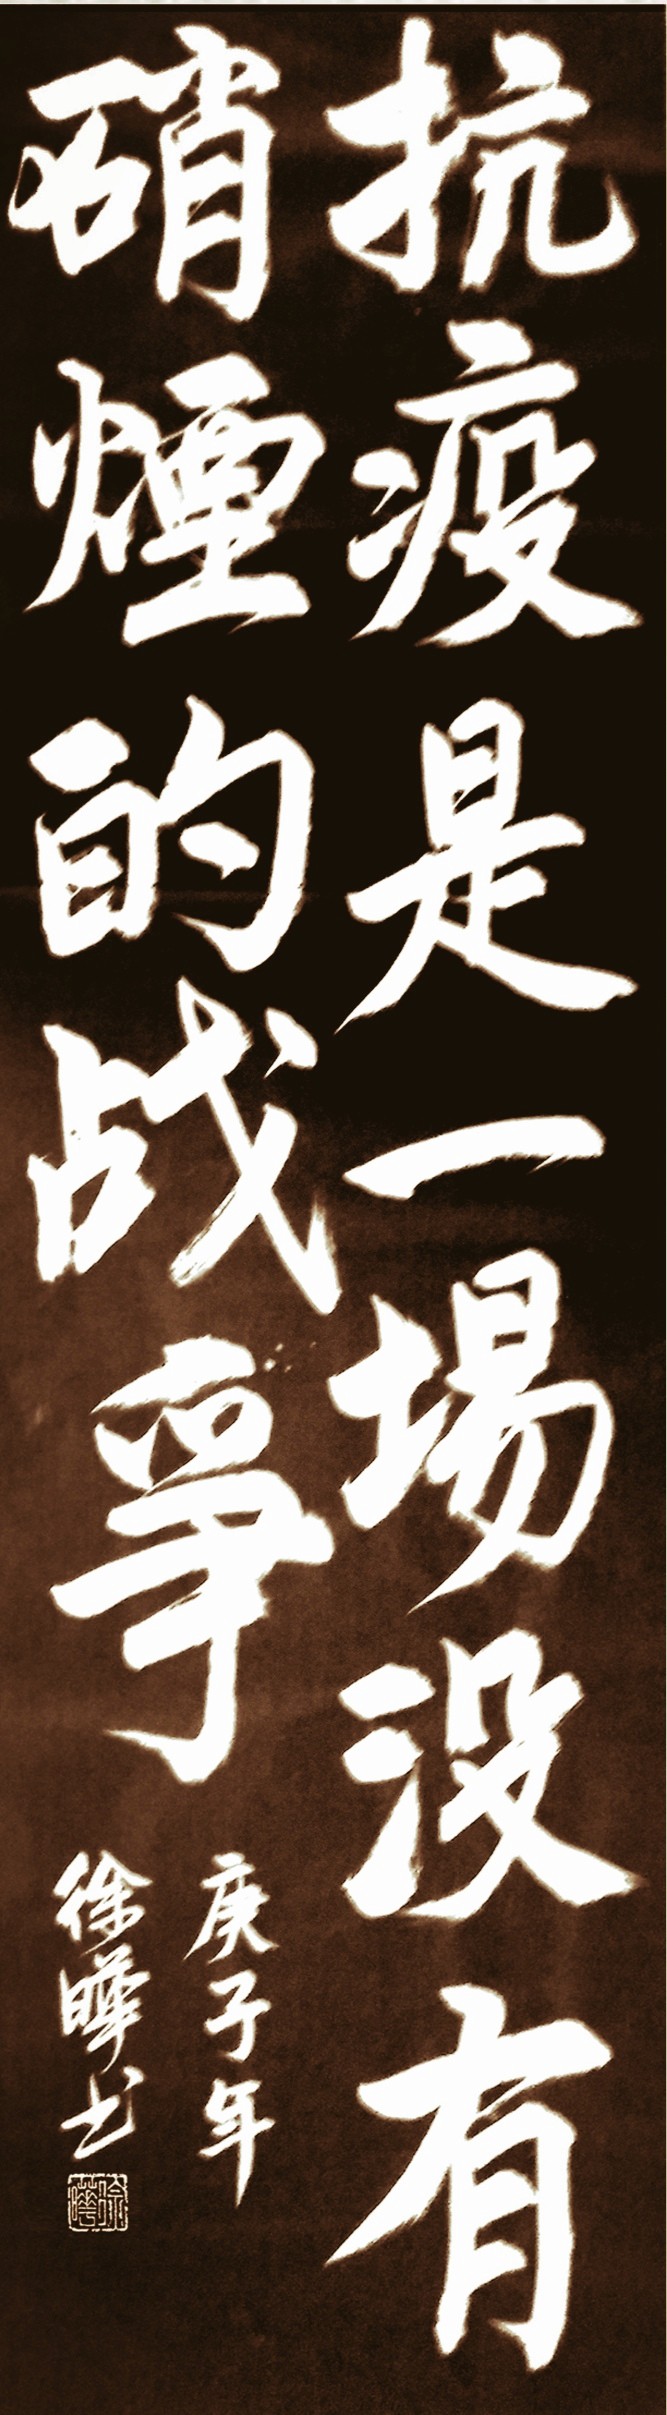 抗疫是一場没有
硝煙的战爭
庚子年
徐曄书